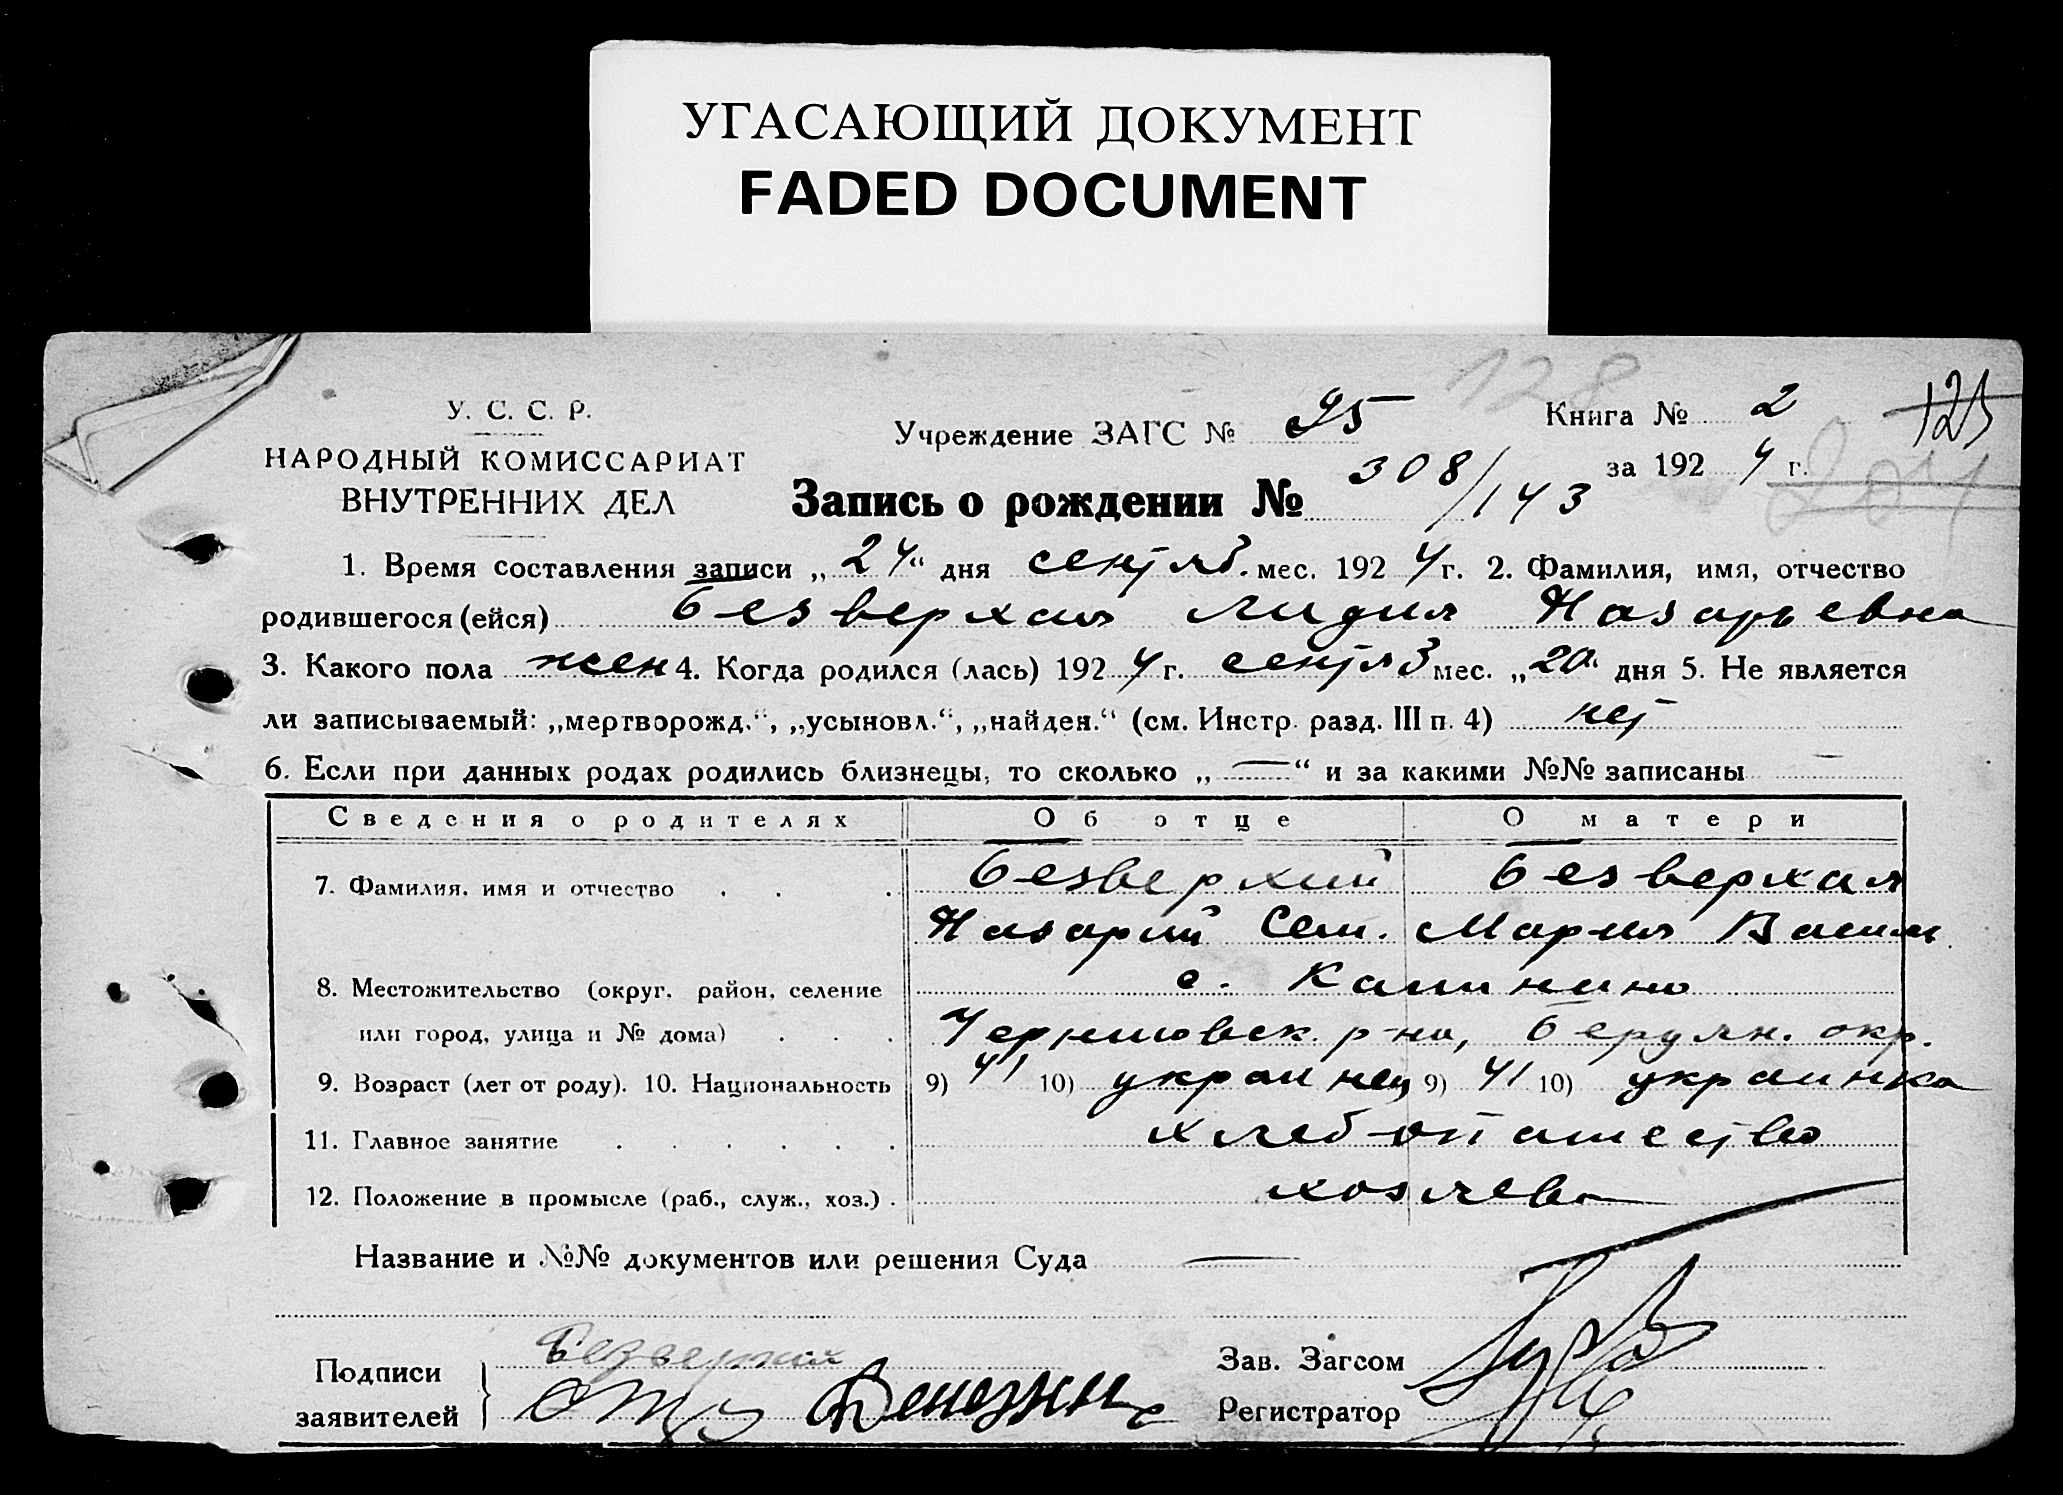 УГАСАЮЩИЙ ДОКУМЕНТ
FADED DOCUMENT
128
У. С. С. Р.
НАРОДНЫЙ КОМИССАРИАТ
ВНУТРЕННИХ ДЕЛ
Учреждение ЗАГС № 95
Книга № 2
за 1924 г.
Запись о рождении № 308/143
1. Время составления записи „24“ дня сентяб. мес. 1924 г. 2. Фамилия, имя, отчество
родившегося (ейся) Безверхая Лидия Назарьевна
3. Какого пола жен 4. Когда родился (лась) 1924 г. сентяб мес. „20“ дня 5. Не является
ли записываемый: „мертворожд.“, „усыновл.“, „найден.“ (см. Инстр. разд. III п. 4) нет
6. Если при данных родах родились близнецы, то сколько „—“ и за какими №№ записаны —
Сведения о родителях Об отце О матери
7. Фамилия, имя и отчество . . . Безверхий Безверхая
Назарий Сем. Мария Васил.
8. Местожительство (округ, район, селение с. Калинино
или город, улица и № дома) . . . Черниговск. р-на, Бердян. окр.
9. Возраст (лет от роду). 10. Национальность 9) 41 10) украинец 9) 41 10) украинка
11. Главное занятие . . . . . . хлебопашество
12. Положение в промысле (раб., служ., хоз.) . хозяева
Название и №№ документов или решения Суда —
Подписи
заявителей
Безверхий
Зав. Загсом
Регистратор